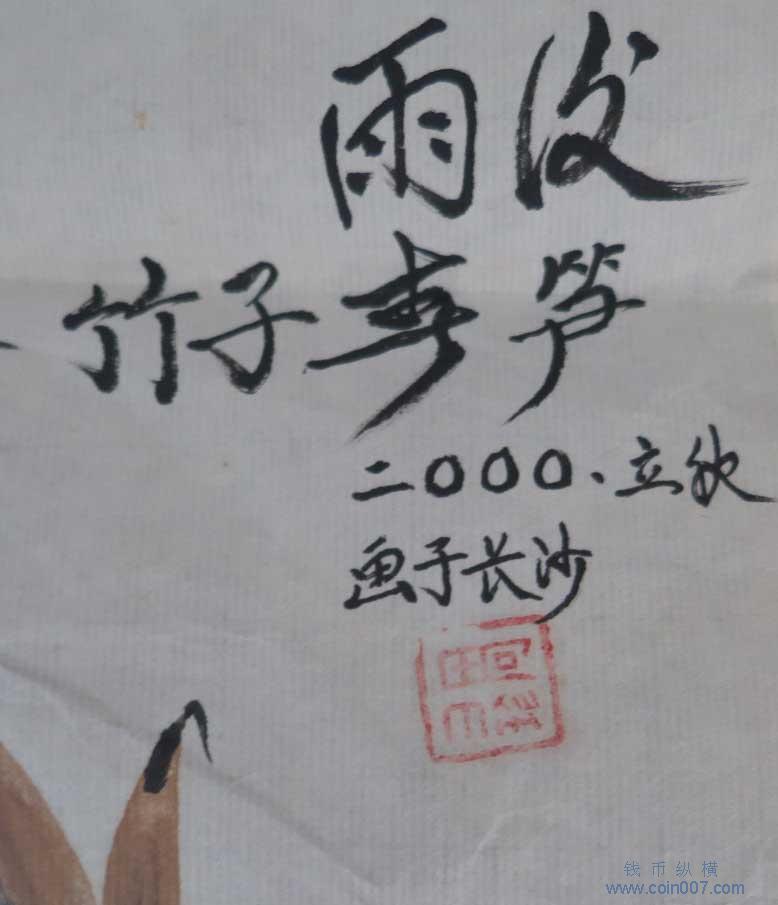 雨後
竹子春笋
二〇〇〇、立秋
画于长沙
钱币纵横
www.coin007.com